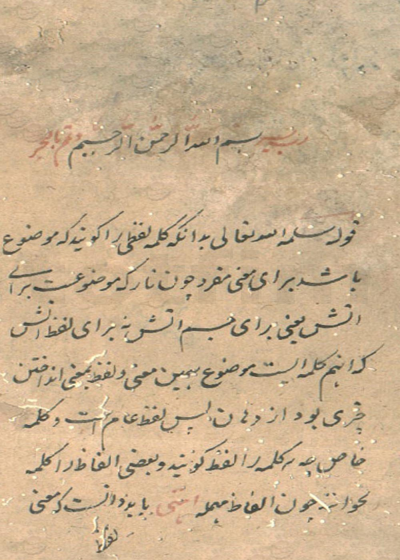 رب یسر بسم الله الرحمن الرحیم وتمم بالخیر
قوله سلمه الله تعالی بدانکه کلمه لفظی را کویند که موضوع
باشد برای معنی مفرد چون نار که موضوعست برای
اتش یعنی برای جسم اتش نه برای لفظ اتش
که انهم کلمه ایست موضوع بهمین معنی و لفظ بمعنی انداختن
چیزی بود از دهان پس لفظ عام است و کلمه
خاص چه هر کلمه را لفظ کویند و بعضی الفاظ را کلمه
نخوانند چون الفاظ مهمله باید دانست که معنی
لفظ